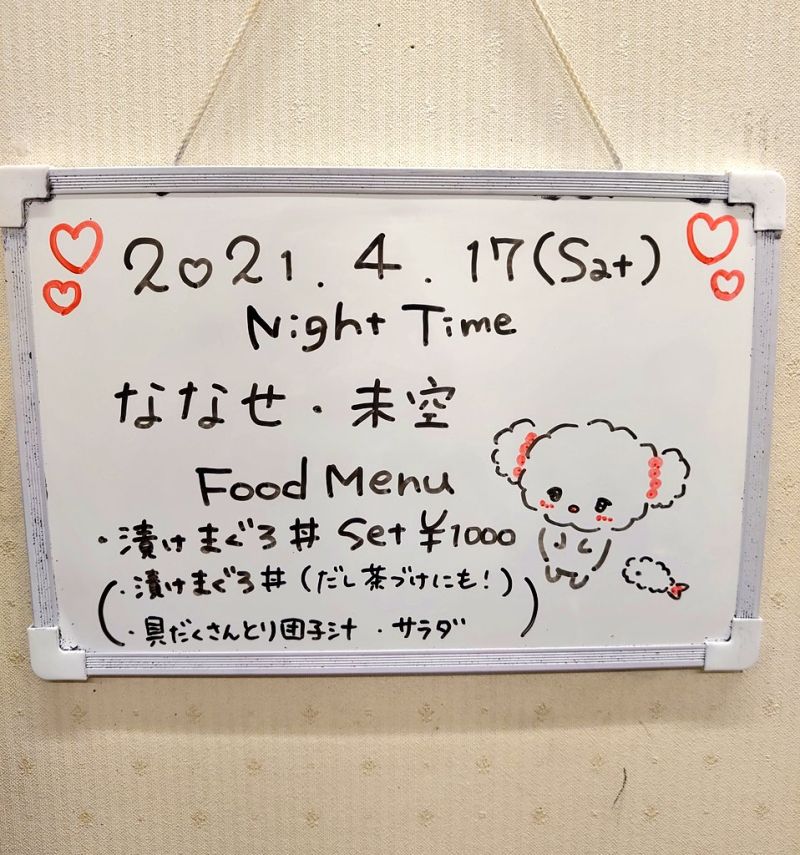 2021.4.17(Sat)
Night Time
ななせ・未空
Food Menu
・漬けまぐろ丼 Set ¥1000
(・漬けまぐろ丼(だし茶づけにも!)
・具だくさんとり団子汁 ・サラダ)